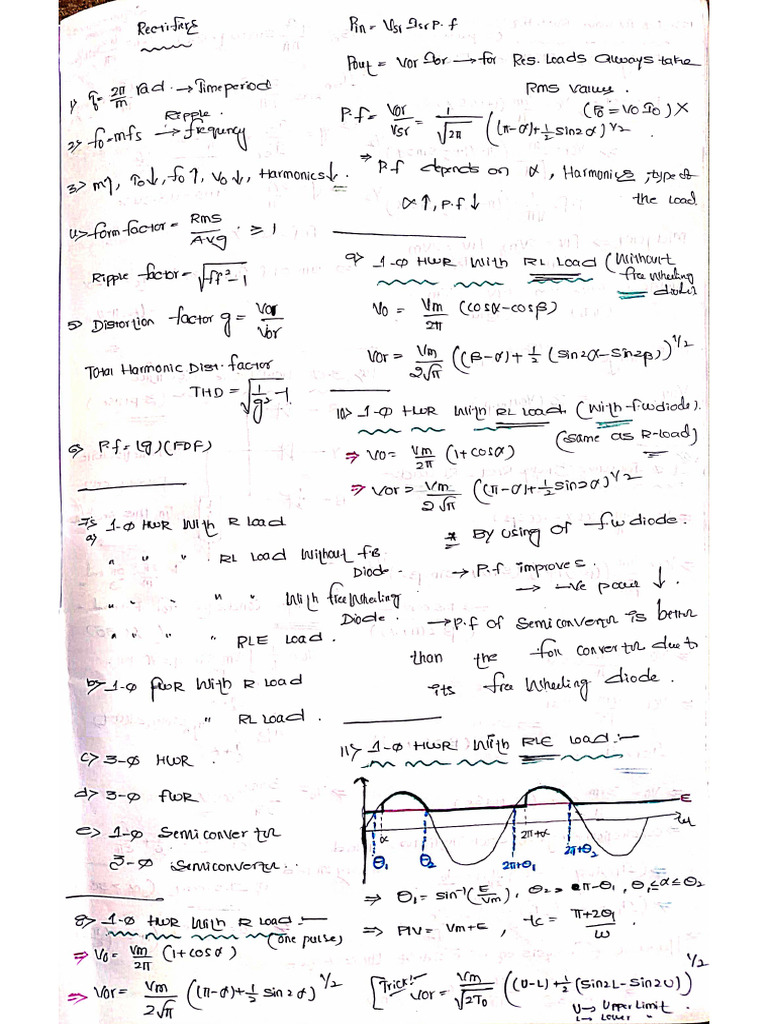 Rectifiers
1) τ₀ = 2π/m rad. → Time period
2) f₀ = mfs → Ripple frequency
3) m↑, τ₀↓, f₀↑, V₀↓, Harmonics↓.
4) form factor = Rms/Avg ≥ 1
Ripple factor = √(ff² - 1)
5) Distortion factor g =
Total Harmonic Dist. factor
THD = √(1/g² - 1)
6) P.f = (g) (FDF)
7) a) 1-Φ HWR with R Load
" " " RL Load without f.B Diode.
" " " " With freewheeling Diode.
" " " RLE Load.
b) 1-Φ FWR with R Load
" RL Load.
c) 3-Φ HWR.
d) 3-Φ FWR
e) 1-Φ Semiconverter
3-Φ Semiconverter..
8) 1-Φ HWR with R Load :- (one pulse)
⇒ V₀ = Vm/2π (1+cosα)
⇒ Vor = Vm/2√π ((π-α)+½ sin2α)^1/2
Pin = Vsr Isr P.f
Pout = Vor Ior → for Res. Loads always take
Rms values.
(P₀ = V₀I₀) ×
P.f = Vor/Vsr = 1/√2π ((π-α)+½ sin2α)^1/2
⇒ P.f depends on α, Harmonics, type of
the Load
α↑, P.f↓
9) 1-Φ HWR With RL Load (Without
free wheeling
diode)
V₀ = Vm/2π (cosα-cosβ)
Vor = Vm/2√π ((β-α)+½ (sin2α-sin2β))^1/2
10) 1-Φ HWR With RL Load (With f.w diode).
(same as R-load)
⇒ V₀ = Vm/2π (1+cosα)
⇒ Vor = Vm/2√π ((π-α)+½ sin2α)^1/2
* By using of f.w diode.
→ P.f improves.
→ -ve power ↓.
→ P.f of Semiconverter is better
than the full converter due to
its free wheeling diode.
11) 1-Φ HWR With RLE Load :-
E
α
2π+α
ωt
θ₁ θ₂ 2π+θ₁ 2π+θ₂
⇒ θ₁ = sin⁻¹(E/Vm), θ₂ = π-θ₁, θ₁≤α≤θ₂
⇒ PIV = Vm+E, tc = π+2θ₁/ω.
[Trick!- Vor = Vm/√2T₀ ((U-L)+½ (sin2L-sin2U))^1/2
U → Upper Limit.
L → Lower "